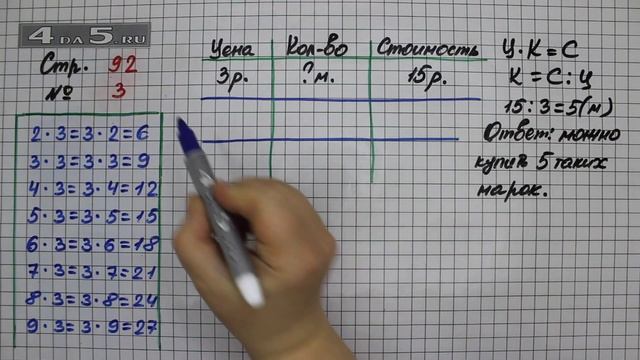 4 DA 5.RU
Стр. 92
№ 3
2·3=3·2=6
3·3=3·3=9
4·3=3·4=12
5·3=3·5=15
6·3=3·6=18
7·3=3·7=21
8·3=3·8=24
9·3=3·9=27
Цена Кол-во Стоимость
3р. ?м. 15р.
Ц·К=С
К=С:Ц
15:3=5(м)
Ответ: можно
купить 5 таких
марок.